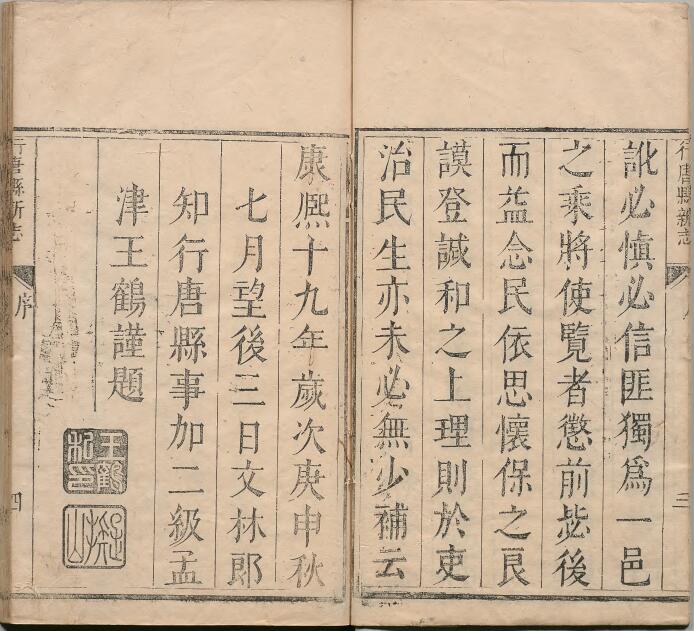 行唐縣新志
三
訛必慎必信匪獨爲一邑
之乘將使覽者懲前毖後
而益念民依思懷保之良
謨登諴和之上理則於吏
治民生亦未必無少補云
康熙十九年歲次庚申秋
七月望後三日文林郎
知行唐縣事加二級孟
津王鶴謹題
王鶴
私印
行唐縣新志
序
四